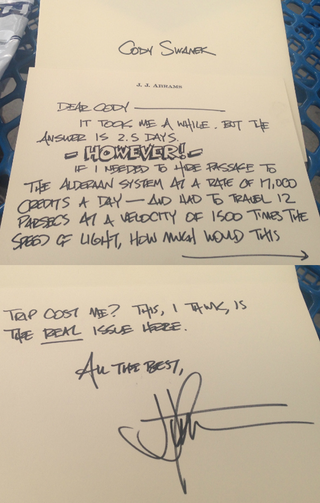 CODY SWANEK
J. J. ABRAMS
DEAR CODY
IT TOOK ME A WHILE. BUT THE
ANSWER IS 2.5 DAYS.
- HOWEVER! -
IF I NEEDED TO HIRE PASSAGE TO
THE ALDERAAN SYSTEM AT A RATE OF 17,000
CREDITS A DAY — AND HAD TO TRAVEL 12
PARSECS AT A VELOCITY OF 1500 TIMES THE
SPEED OF LIGHT, HOW MUCH WOULD THIS
TRIP COST ME? THIS, I THINK, IS
THE REAL ISSUE HERE.
ALL THE BEST,